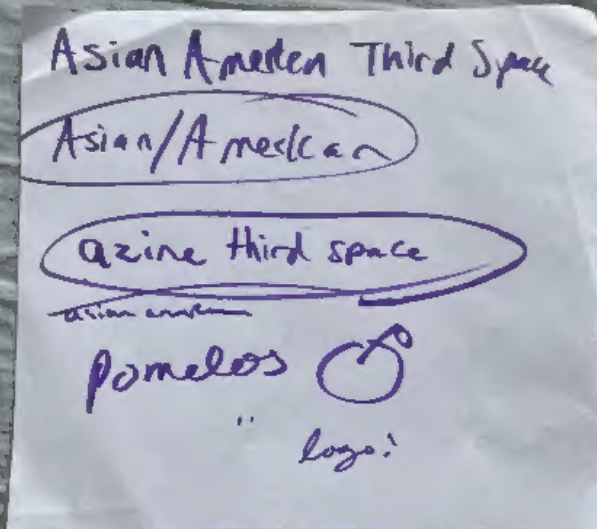 Asian Amerten Third Space
Asian/American
azine third space
asian
pomelos
"
logo!